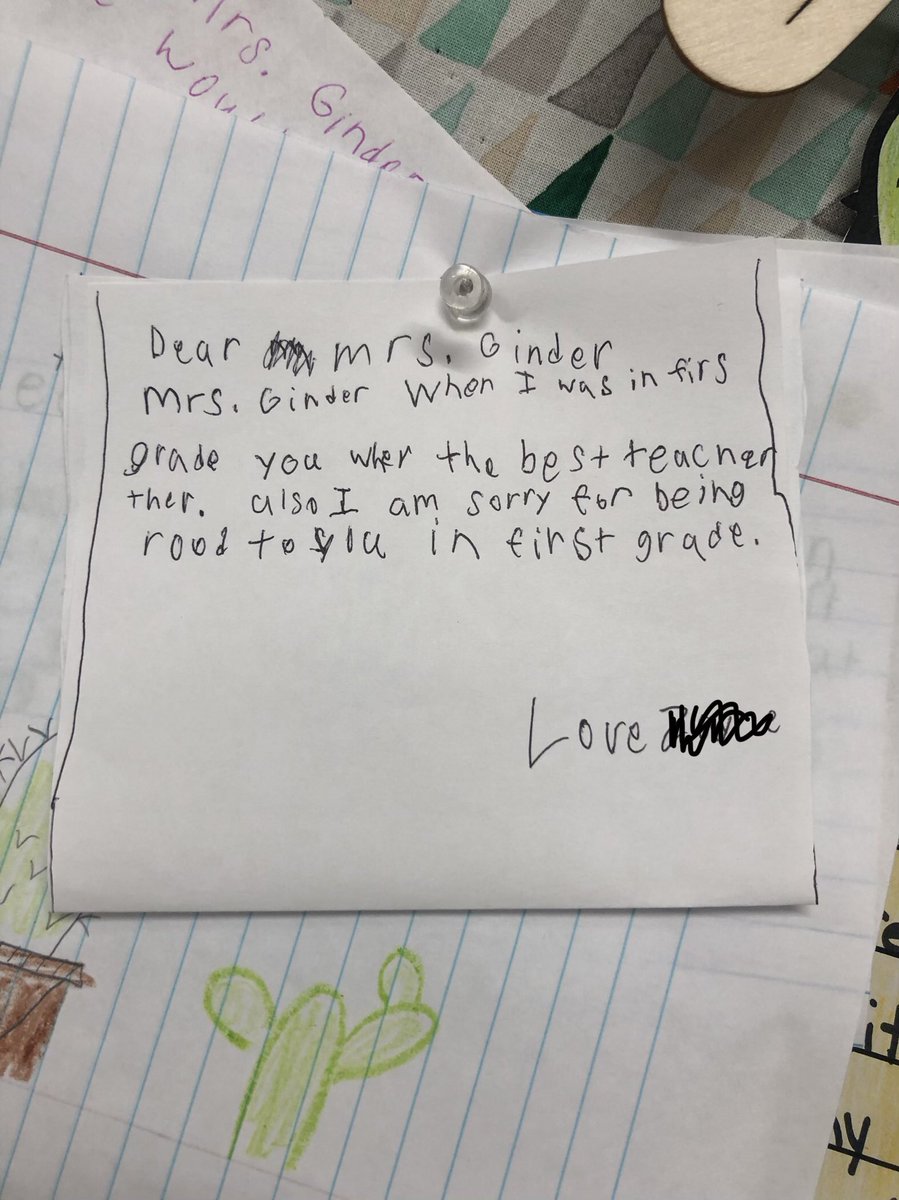 Mrs. Ginder
Dear Mrs. Ginder
Mrs. Ginder When I was in firs
grade you wher the best teacher
ther. also I am sorry for being
rood to you in first grade.
Love
it